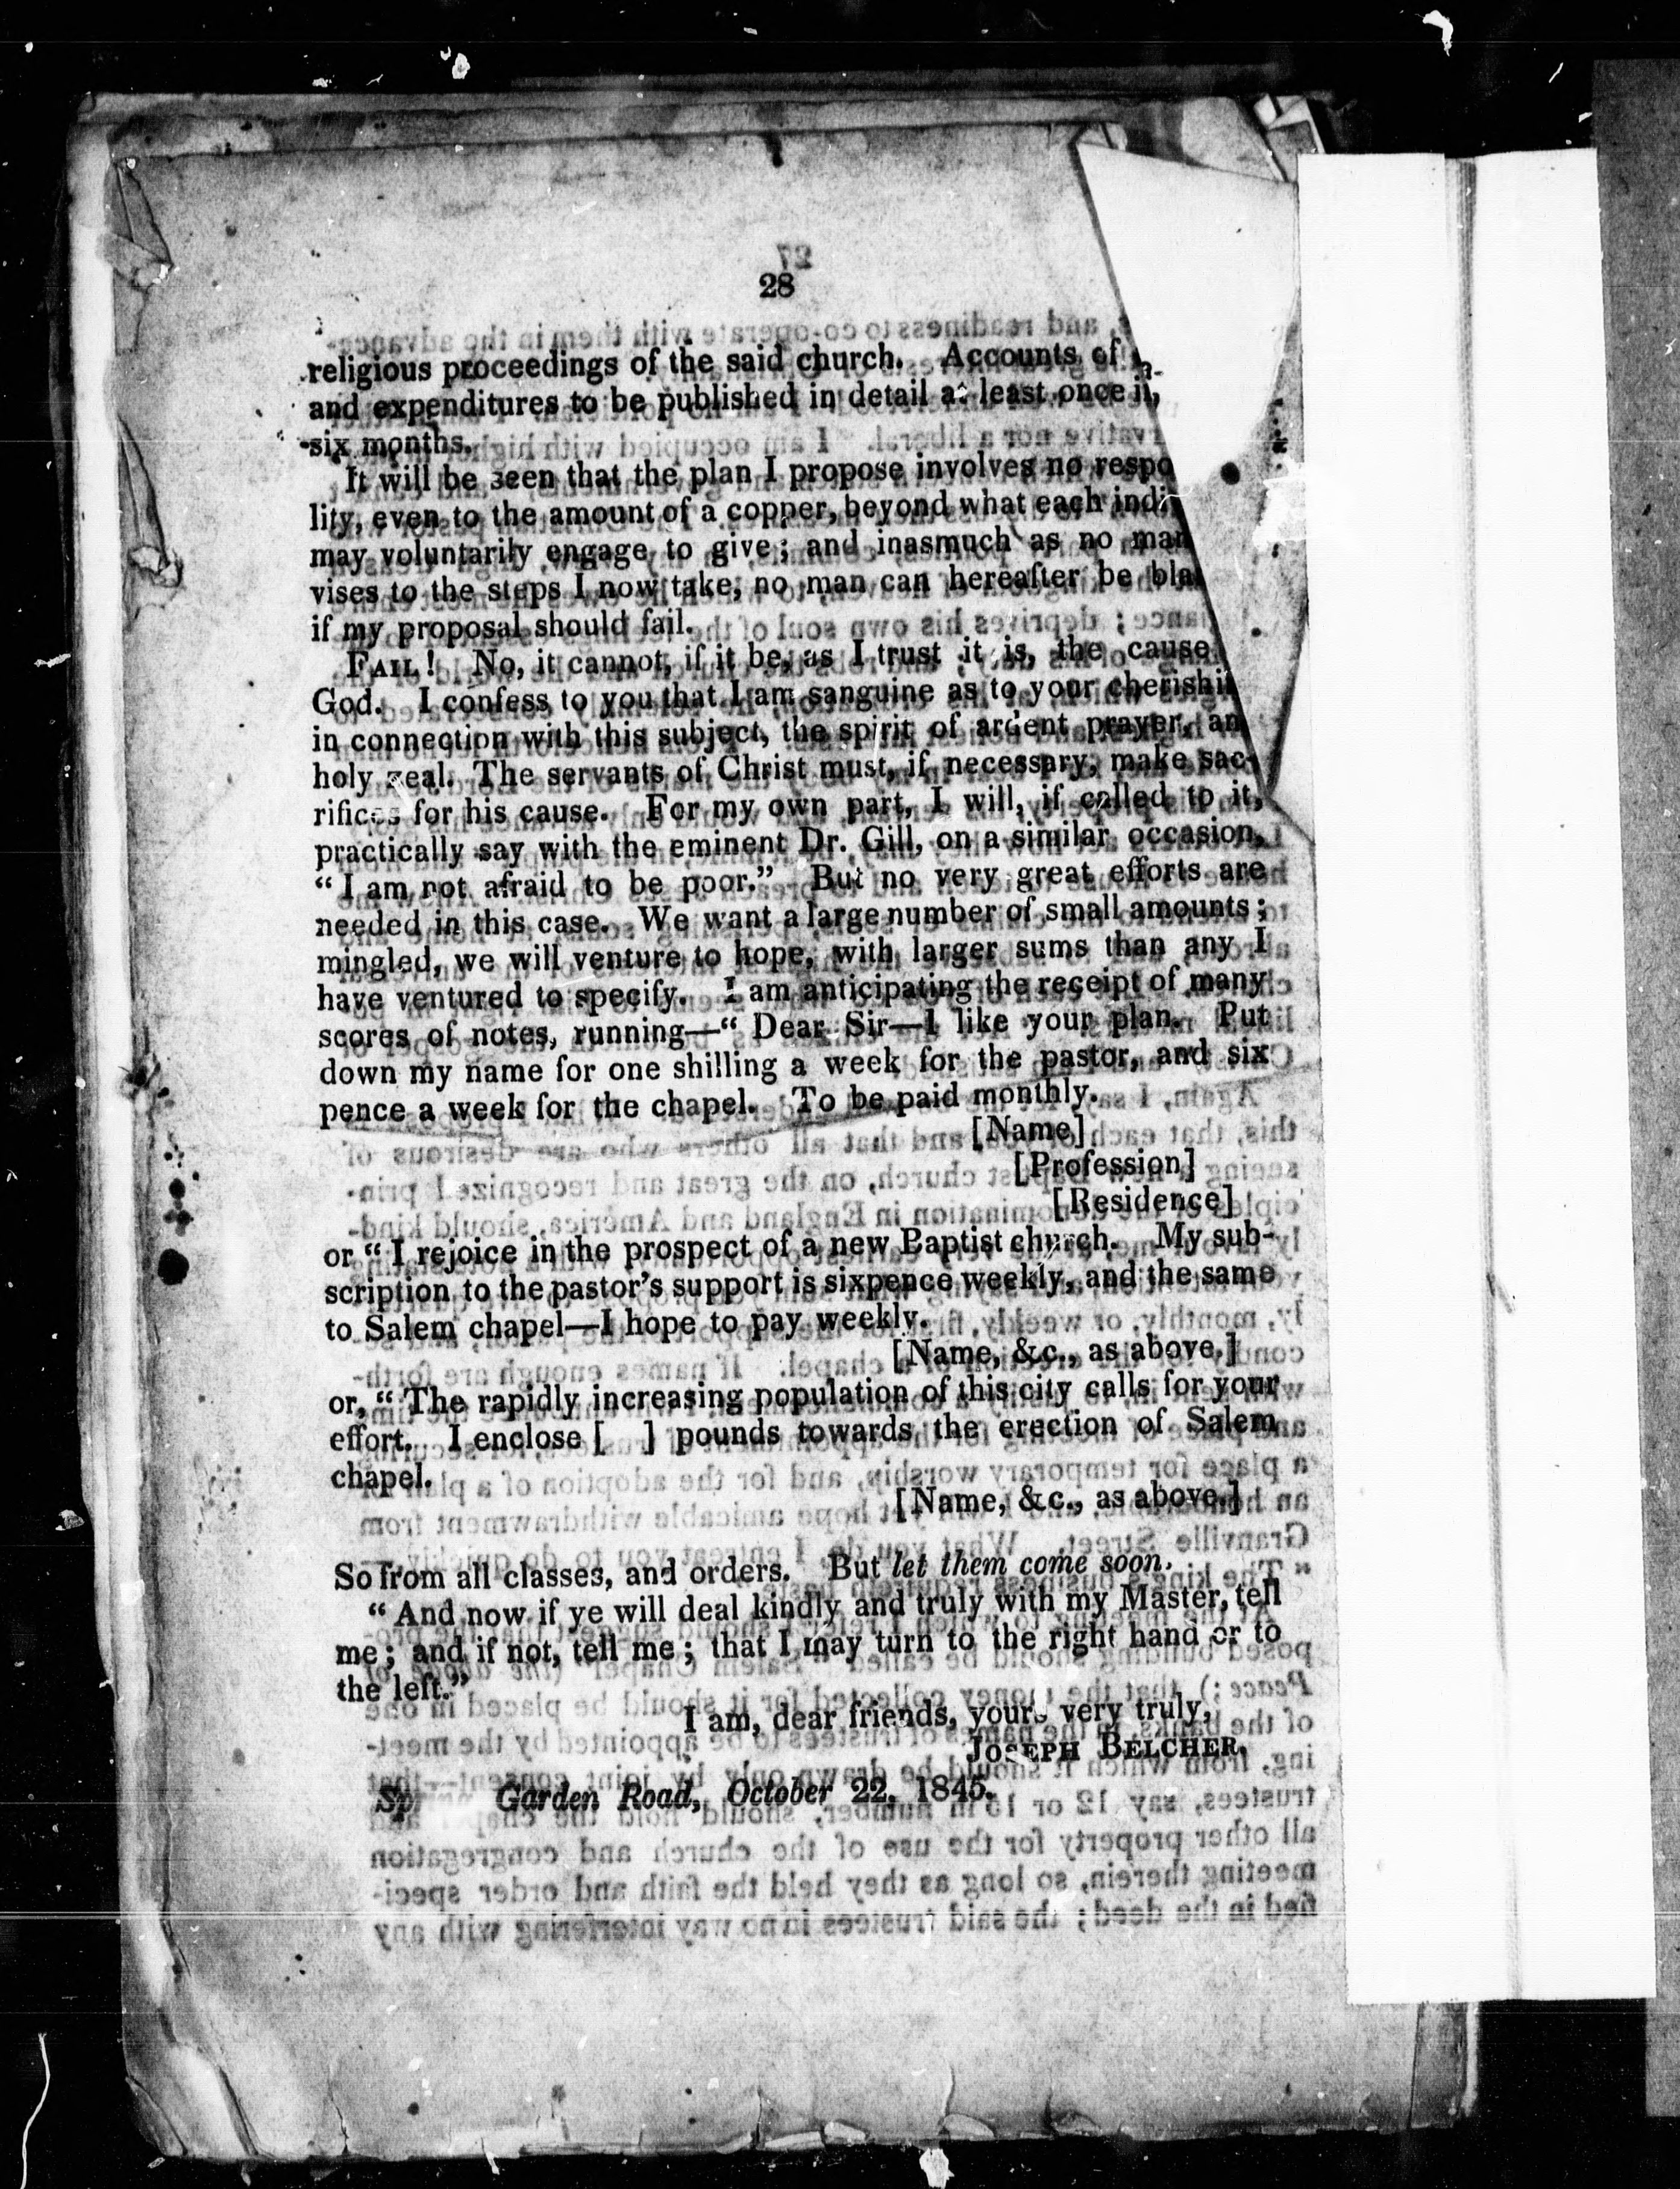 28
religious proceedings of the said church. Accounts of
and expenditures to be published in detail at least once in
six months.
It will be seen that the plan I propose involves no respo
lity, even to the amount of a copper, beyond what each indi
may voluntarily engage to give; and inasmuch as no man
vises to the steps I now take, no man can hereafter be bla
if my proposal should fail.
FAIL! No, it cannot, if it be, as I trust it is, the cause
God. I confess to you that I am sanguine as to your cherishi
in connection with this subject, the spirit of ardent prayer, an
holy zeal. The servants of Christ must, if necessary, make sac-
rifices for his cause. For my own part, I will, if called to it,
practically say with the eminent Dr. Gill, on a similar occasion,
“I am not afraid to be poor.” But no very great efforts are
needed in this case. We want a large number of small amounts;
mingled, we will venture to hope, with larger sums than any I
have ventured to specify. I am anticipating the receipt of many
scores of notes, running—“Dear Sir—I like your plan. Put
down my name for one shilling a week for the pastor, and six
pence a week for the chapel. To be paid monthly.
[Name]
[Profession]
[Residence]
or “I rejoice in the prospect of a new Baptist church. My sub-
scription to the pastor's support is sixpence weekly, and the same
to Salem chapel—I hope to pay weekly.
[Name, &c., as above.]
or, “The rapidly increasing population of this city calls for your
effort. I enclose [ ] pounds towards the erection of Salem
chapel.
[Name, &c., as above.]
So from all classes, and orders. But let them come soon.
“And now if ye will deal kindly and truly with my Master, tell
me; and if not, tell me; that I may turn to the right hand or to
the left.”
I am, dear friends, yours very truly,
JOSEPH BELCHER.
Sp Garden Road, October 22, 1845.